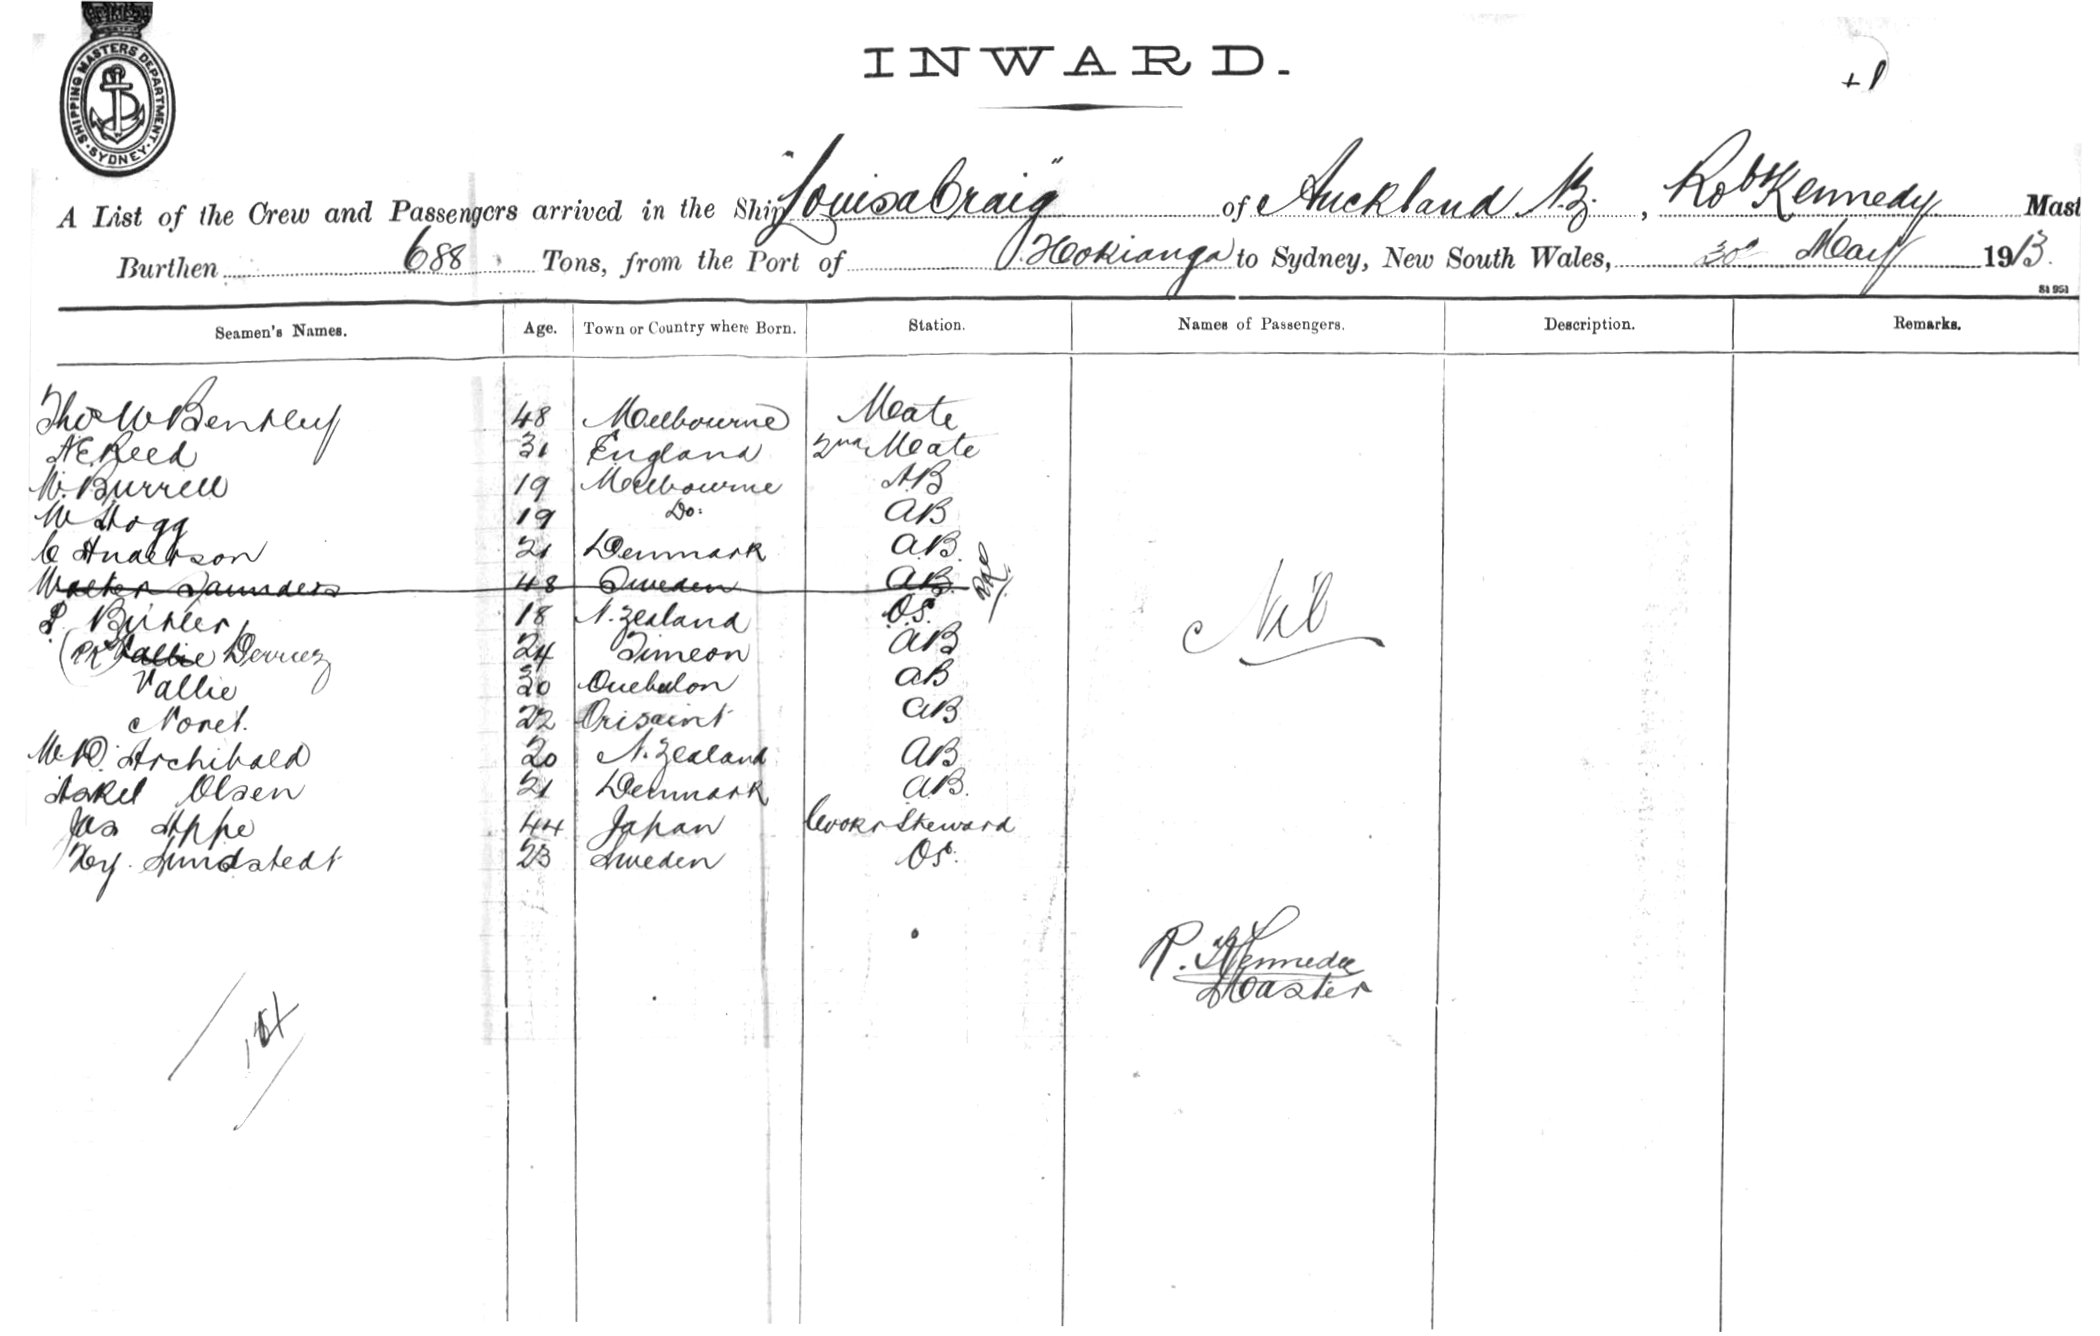 SHIPPING MASTERS DEPARTMENT.
SYDNEY
INWARD.
+1
A List of the Crew and Passengers arrived in the Ship "Louisa Craig" of Auckland N.Z., Robt Kennedy Mast
Burthen 688 Tons, from the Port of Hokianga to Sydney, New South Wales, 30 May 1913.
Seamen's Names. Age. Town or Country where Born. Station. Names of Passengers. Description. Remarks.
Thos W Bentley 48 Melbourne Mate
A E Reed 31 England 2nd Mate
W. Burrell 19 Melbourne AB
W Hogg 19 Do: AB
C Anderson 21 Denmark AB.
Walter Saunders 48 Sweden AB.
P. Butler 18 N. Zealand O.S.
Vallie 24 Simeon AB
Vallie 20 AB
Noret. 22 AB
W. D. Archibald 20 N. Zealand AB
Askel Olsen 21 Denmark AB.
Jas Appe 44 Japan Cook & Steward
Hy. Lundstedt 23 Sweden OS.
Nil
R. Kennedy
Master